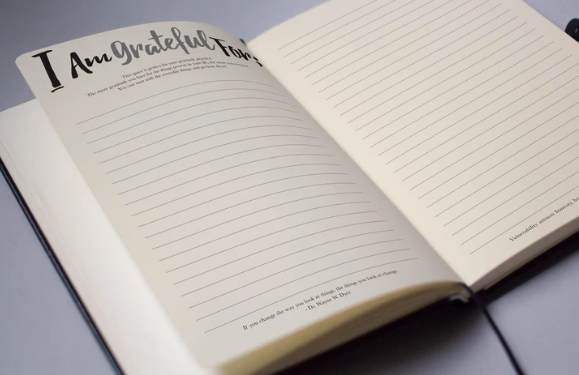 I Am grateful For:
This space is perfect for your gratitude practice.
The more gratitude you have for the things present in your life, the
You can start with the everyday things and go from there!
If you change the way you look at things, the things you look at change.
- Dr. Wayne W. Dyer
Vulnerability attracts honesty,